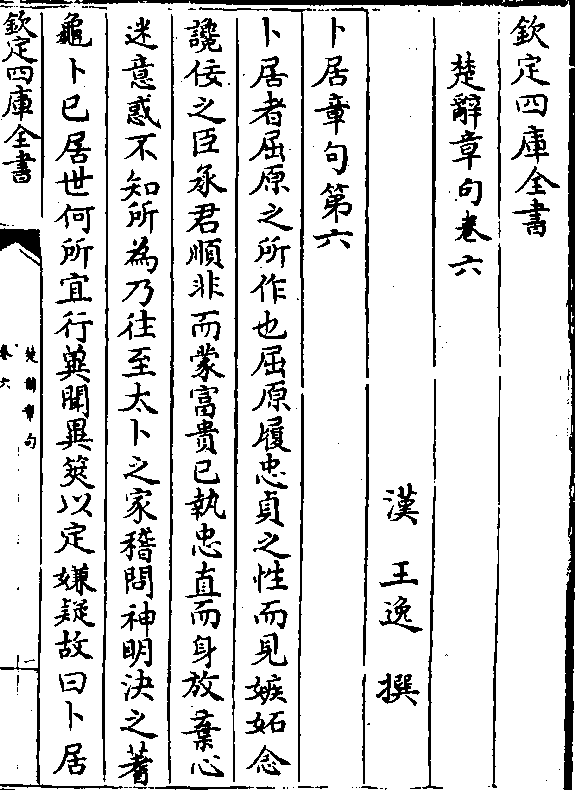 欽定四庫全書
楚辭章句卷六
漢 王逸 撰
卜居章句第六
卜居者屈原之所作也屈原履忠貞之性而見嫉妬念
讒佞之臣承君順非而蒙富貴已執忠直而身放棄心
迷意惑不知所為乃往至太卜之家稽問神明決之蓍
龜卜已居世何所宜行冀聞異筴以定嫌疑故曰卜居
欽定四庫全書
楚辭章句
卷六
一